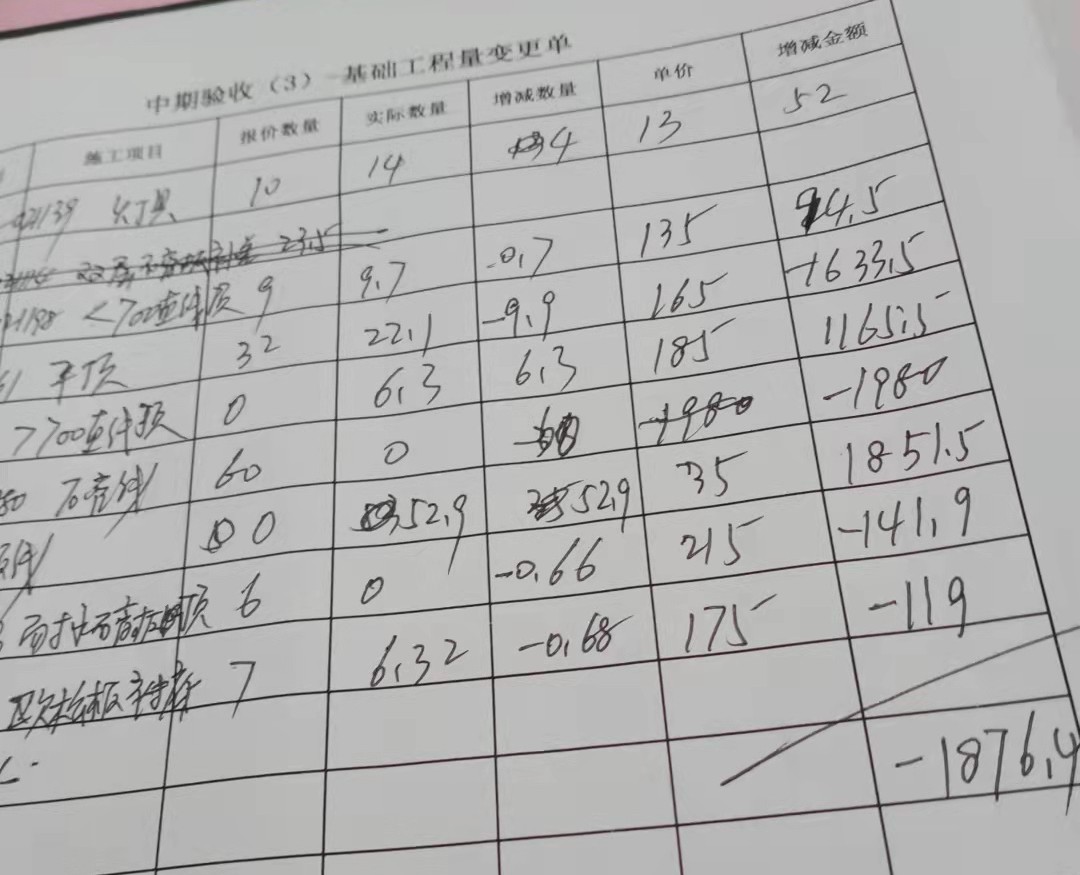 中期验收（3）-基础工程量变更单
施工项目 报价数量 实际数量 增减数量 单价 增减金额
灯具 10 14 4 13 52
23.5
<700造件顶 9 9.7 -0.7 135 94.5
平顶 32 22.1 -9.9 165 -1633.5
>700造件顶 0 6.3 6.3 185 1165.5
石膏线 60 0 -60 -1980 -1980
0 52.9 52.9 35 1851.5
顶 6 0 -0.66 215 -141.9
7 6.32 -0.68 175 -119
-1876.4